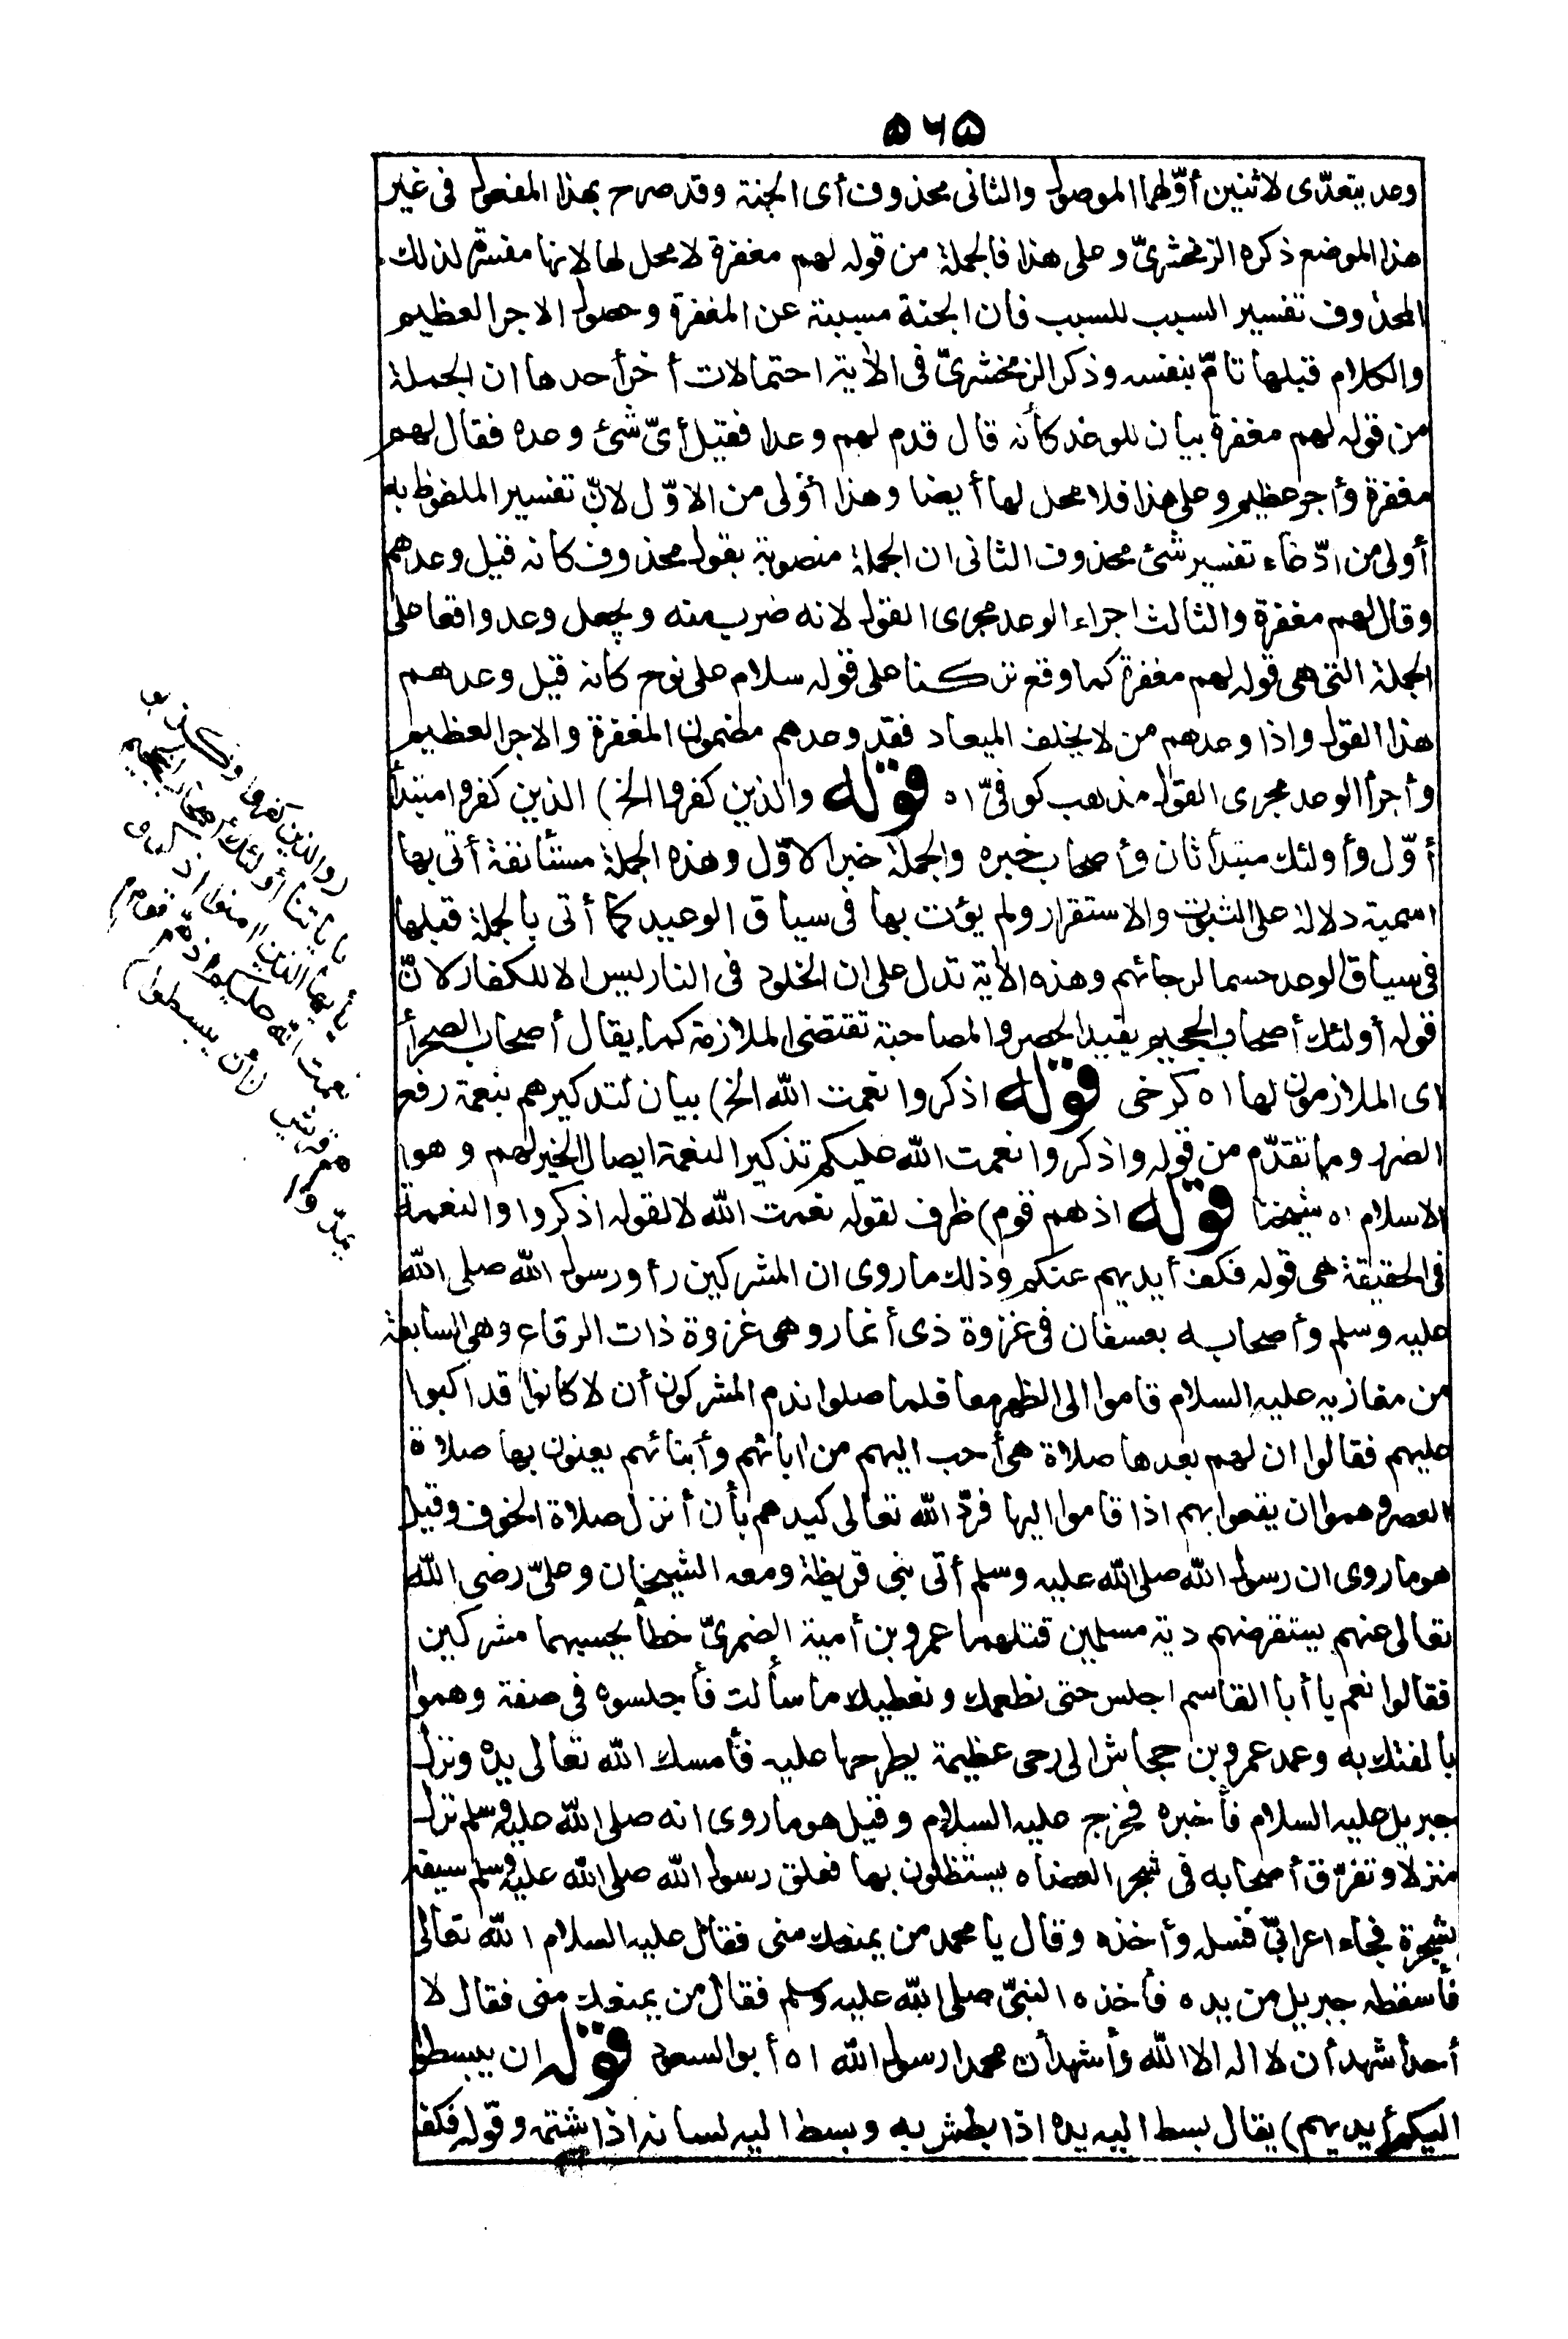 ۵۶۵
وعد يتعدّى لاثنين أوّلهما الموصول والثانى محذوف أى الجنة وقد صرح بهذا المفعول فى غير
هذا الموضع ذكره الزمخشرىّ وعلى هذا فالجملة من قوله لهم مغفرة لا محل لها لانها مفسرة لذلك
المحذوف تفسير السبب للسبب فان الجنة مسببة عن المغفرة وحصول الاجر العظيم
والكلام قبلها تامّ بنفسه وذكر الزمخشرىّ فى الأية احتمالات أخر أحدها ان الجملة
من قوله لهم مغفرة بيان للوعد كأنه قال قدم لهم وعدا فقيل أىّ شئ وعده فقال لهم
مغفرة وأجر عظيم وعلى هذا فلا محل لها أيضا وهذا أولى من الاوّل لانّ تفسير الملفوظ به
أولى من ادّعاء تفسير شئ محذوف الثانى ان الجملة منصوبة بقول محذوف كانه قيل وعدهم
وقال لهم مغفرة والثالث اجراء الوعد مجرى القول لانه ضرب منه ويجعل وعد واقعا على
الجملة التى هى قوله لهم مغفرة كما وقع تركنا على قوله سلام على نوح كانه قيل وعدهم
هذا القول واذا وعدهم من لا يخلف الميعاد فقد وعدهم مضمون المغفرة والاجر العظيم
وأجرأ الوعد مجرى القول مذهب كوفىّ اه قوله والذين كفروا الخ) الذين كفروا مبتدأ
أوّل وأولئك مبتدأ ثان وأصحاب خبره والجملة خبر الاوّل وهذه الجملة مستأنفة أتى بها
اسمية دلالة على الثبوت والاستقرار ولم يؤت بها فى سياق الوعيد كما أتى بالجملة قبلها
فى سياق الوعد حسما لرجائهم وهذه الأية تدل على ان الخلود فى النار ليس الا للكفار لانّ
قوله أولئك أصحاب الجحيم يفيد الحصر والمصاحبة تقتضى الملازمة كما يقال أصحاب الصحرأ
اى الملازمون لها اه كرخى قوله اذكروا نعمت الله الخ) بيان لتذكيرهم بنعمة رفع
الضرر وما تقدّم من قوله واذكروا نعمت الله عليكم تذكير النعمة ايصال الخير لهم وهو
الاسلام اه شيخنا قوله اذ هم قوم) ظرف لقوله نعمت الله لا لقوله اذكروا والنعمة
فى الحقيقة هى قوله فكف أيديهم عنكم وذلك ما روى ان المشركين رأو رسول الله صلى الله
عليه وسلم وأصحابه بعسفان فى غزوة ذى أنمار وهى غزوة ذات الرقاع وهى السابعة
من مغازيه عليه السلام قاموا الى الظهر معا فلما صلوا ندم المشركون أن لا كانوا قد اكبوا
عليهم فقالوا ان لهم بعدها صلاة هى أحب اليهم من ابائهم وأبنائهم يعنون بها صلاة
العصر وهموا ان يقعوا بهم اذا قاموا اليها فردّ الله تعالى كيدهم بأن أنزل صلاة الخوف وقيل
هو ما روى ان رسول الله صلى الله عليه وسلم أتى بنى قريظة ومعه الشيخان وعلىّ رضى الله
تعالى عنهم يستقرضهم دية مسلمين قتلهما عمرو بن أمية الضمرىّ خطأ يحسبهما مشركين
فقالوا نعم يا أبا القاسم اجلس حتى نطعمك ونعطيك ما سألت فأجلسوه فى صفة وهموا
بالفتك به وعمد عمرو بن جحاش الى رحى عظيمة يطرحها عليه فأمسك الله تعالى يده ونزل
جبريل عليه السلام فأخبره فخرج عليه السلام وقيل هو ما روى انه صلى الله عليه وسلم نزل
منزلا وتفرّق أصحابه فى شجر العضاه يستظلون بها فعلق رسول الله صلى الله عليه وسلم سيفه
بشجرة فجاء اعرابىّ فسله وأخذه وقال يا محمد من يمنعك منى فقال عليه السلام الله تعالى
فأسقطه جبريل من يده فأخذه النبىّ صلى الله عليه وسلم فقال من يمنعك منى فقال لا
أحد أشهد أن لا اله الا الله وأشهد أن محمدا رسول الله اه أبو السعود قوله ان يبسطوا
اليكم أيديهم) يقال بسط اليه يده اذا بطش به وبسط اليه لسانه اذا شتمه وقوله فكف
(والذين كفروا وكذبوا
بأياتنا أولئك أصحاب الجحيم
يأيها الذين امنوا اذكروا
نعمت الله عليكم اذ هم قوم)
هم قريش (أن يبسطوا)
يمدّوا